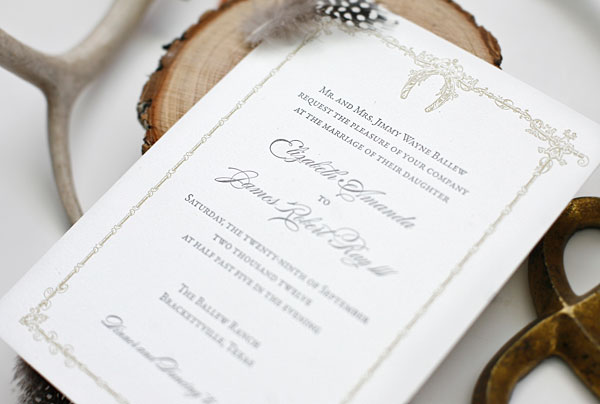 Mr. and Mrs. Jimmy Wayne Ballew
request the pleasure of your company
at the marriage of their daughter
Elizabeth Amanda
to
James Robert Roy III
Saturday, the twenty-ninth of September
two thousand twelve
at half past five in the evening
The Ballew Ranch
Brackettville, Texas
Dinner and Dancing